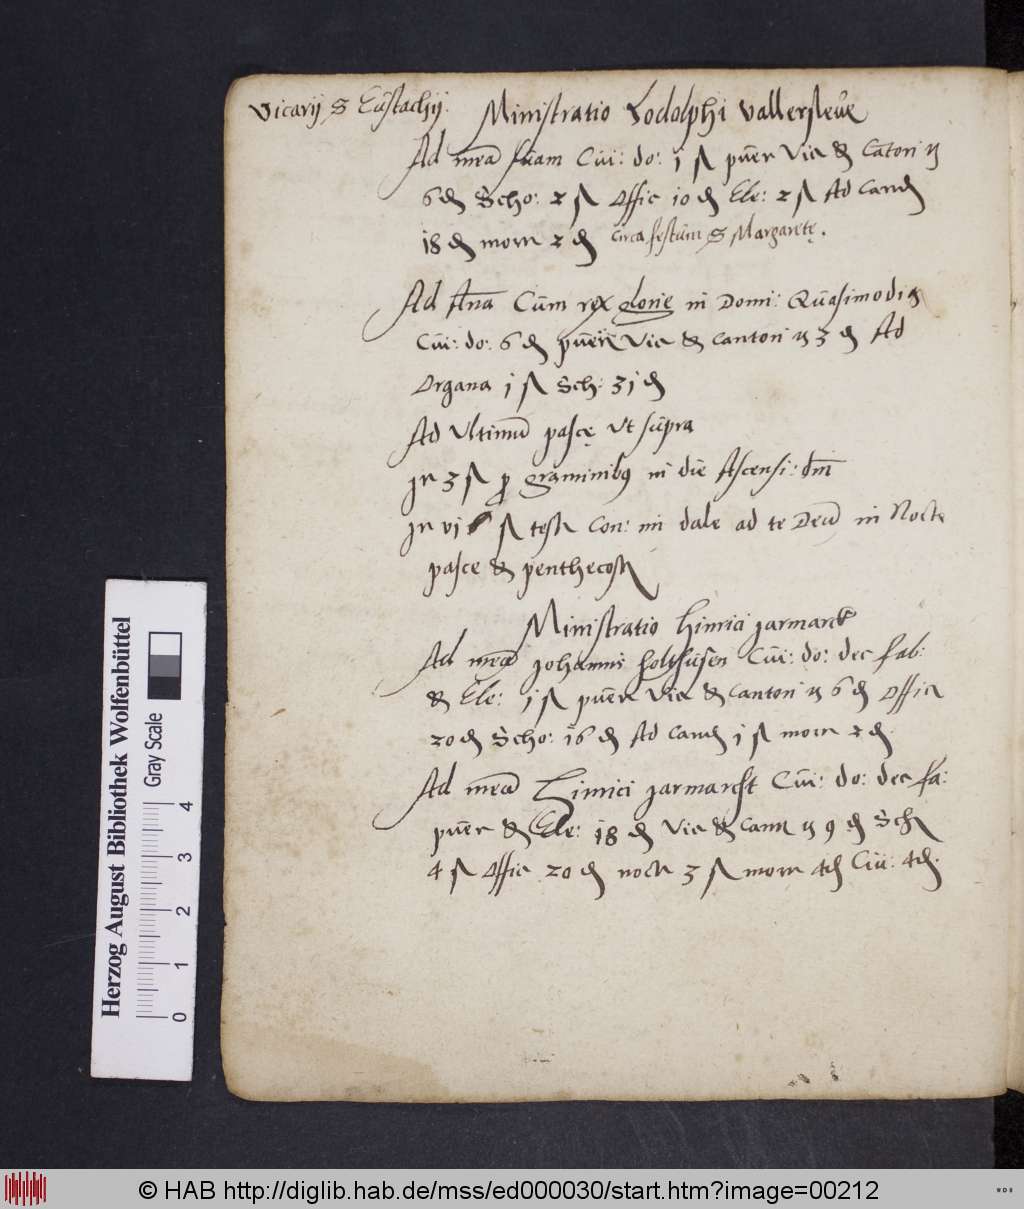 Vicarij S Eustachij. Ministratio Lodolphi Vallersleue
Ad mēā suam Cui: do: 1 ſ puer Vic & Cantori
6 ₰ Scho: 2 ſ Offic 10 ₰ Ele: 2 ſ Ad Cand
18 ₰ morn 2 ₰ Circa festum S Margarete.
Ad Cum rex glorie in Domi: Quasimodi
Cui: do: 6 ₰ puer Vic & Cantori 3 ₰ Ad
Organa 1 ſ Sch: 31 ₰
Ad Ultimū pasce Ut supra
In 3 ſ p graminibus in die Ascensi: dm̄
In vj ſ test Con: dale ad te Deū in Nocte
pasce & penthecost
Ministratio Hinrici Jarmarck
Ad mēā Johannis Holthusen Cui: do: dec Fab:
& Ele: 1 ſ puer Vic & Cantori 6 ₰ Offic
20 ₰ Scho: 16 ₰ Ad Cand 1 ſ morn 2 ₰.
Ad mēā Hinrici Jarmarckt Cui: do: dec Fa:
puer & Ele: 18 ₰ Vic & Cann 9 ₰ Sch
4 ſ Offic 20 ₰ noct 3 ſ morn 4 ₰ Cu: 4 ₰.
Herzog August Bibliothek Wolfenbüttel
Gray Scale
0 1 2 3 4
© HAB http://diglib.hab.de/mss/ed000030/start.htm?image=00212